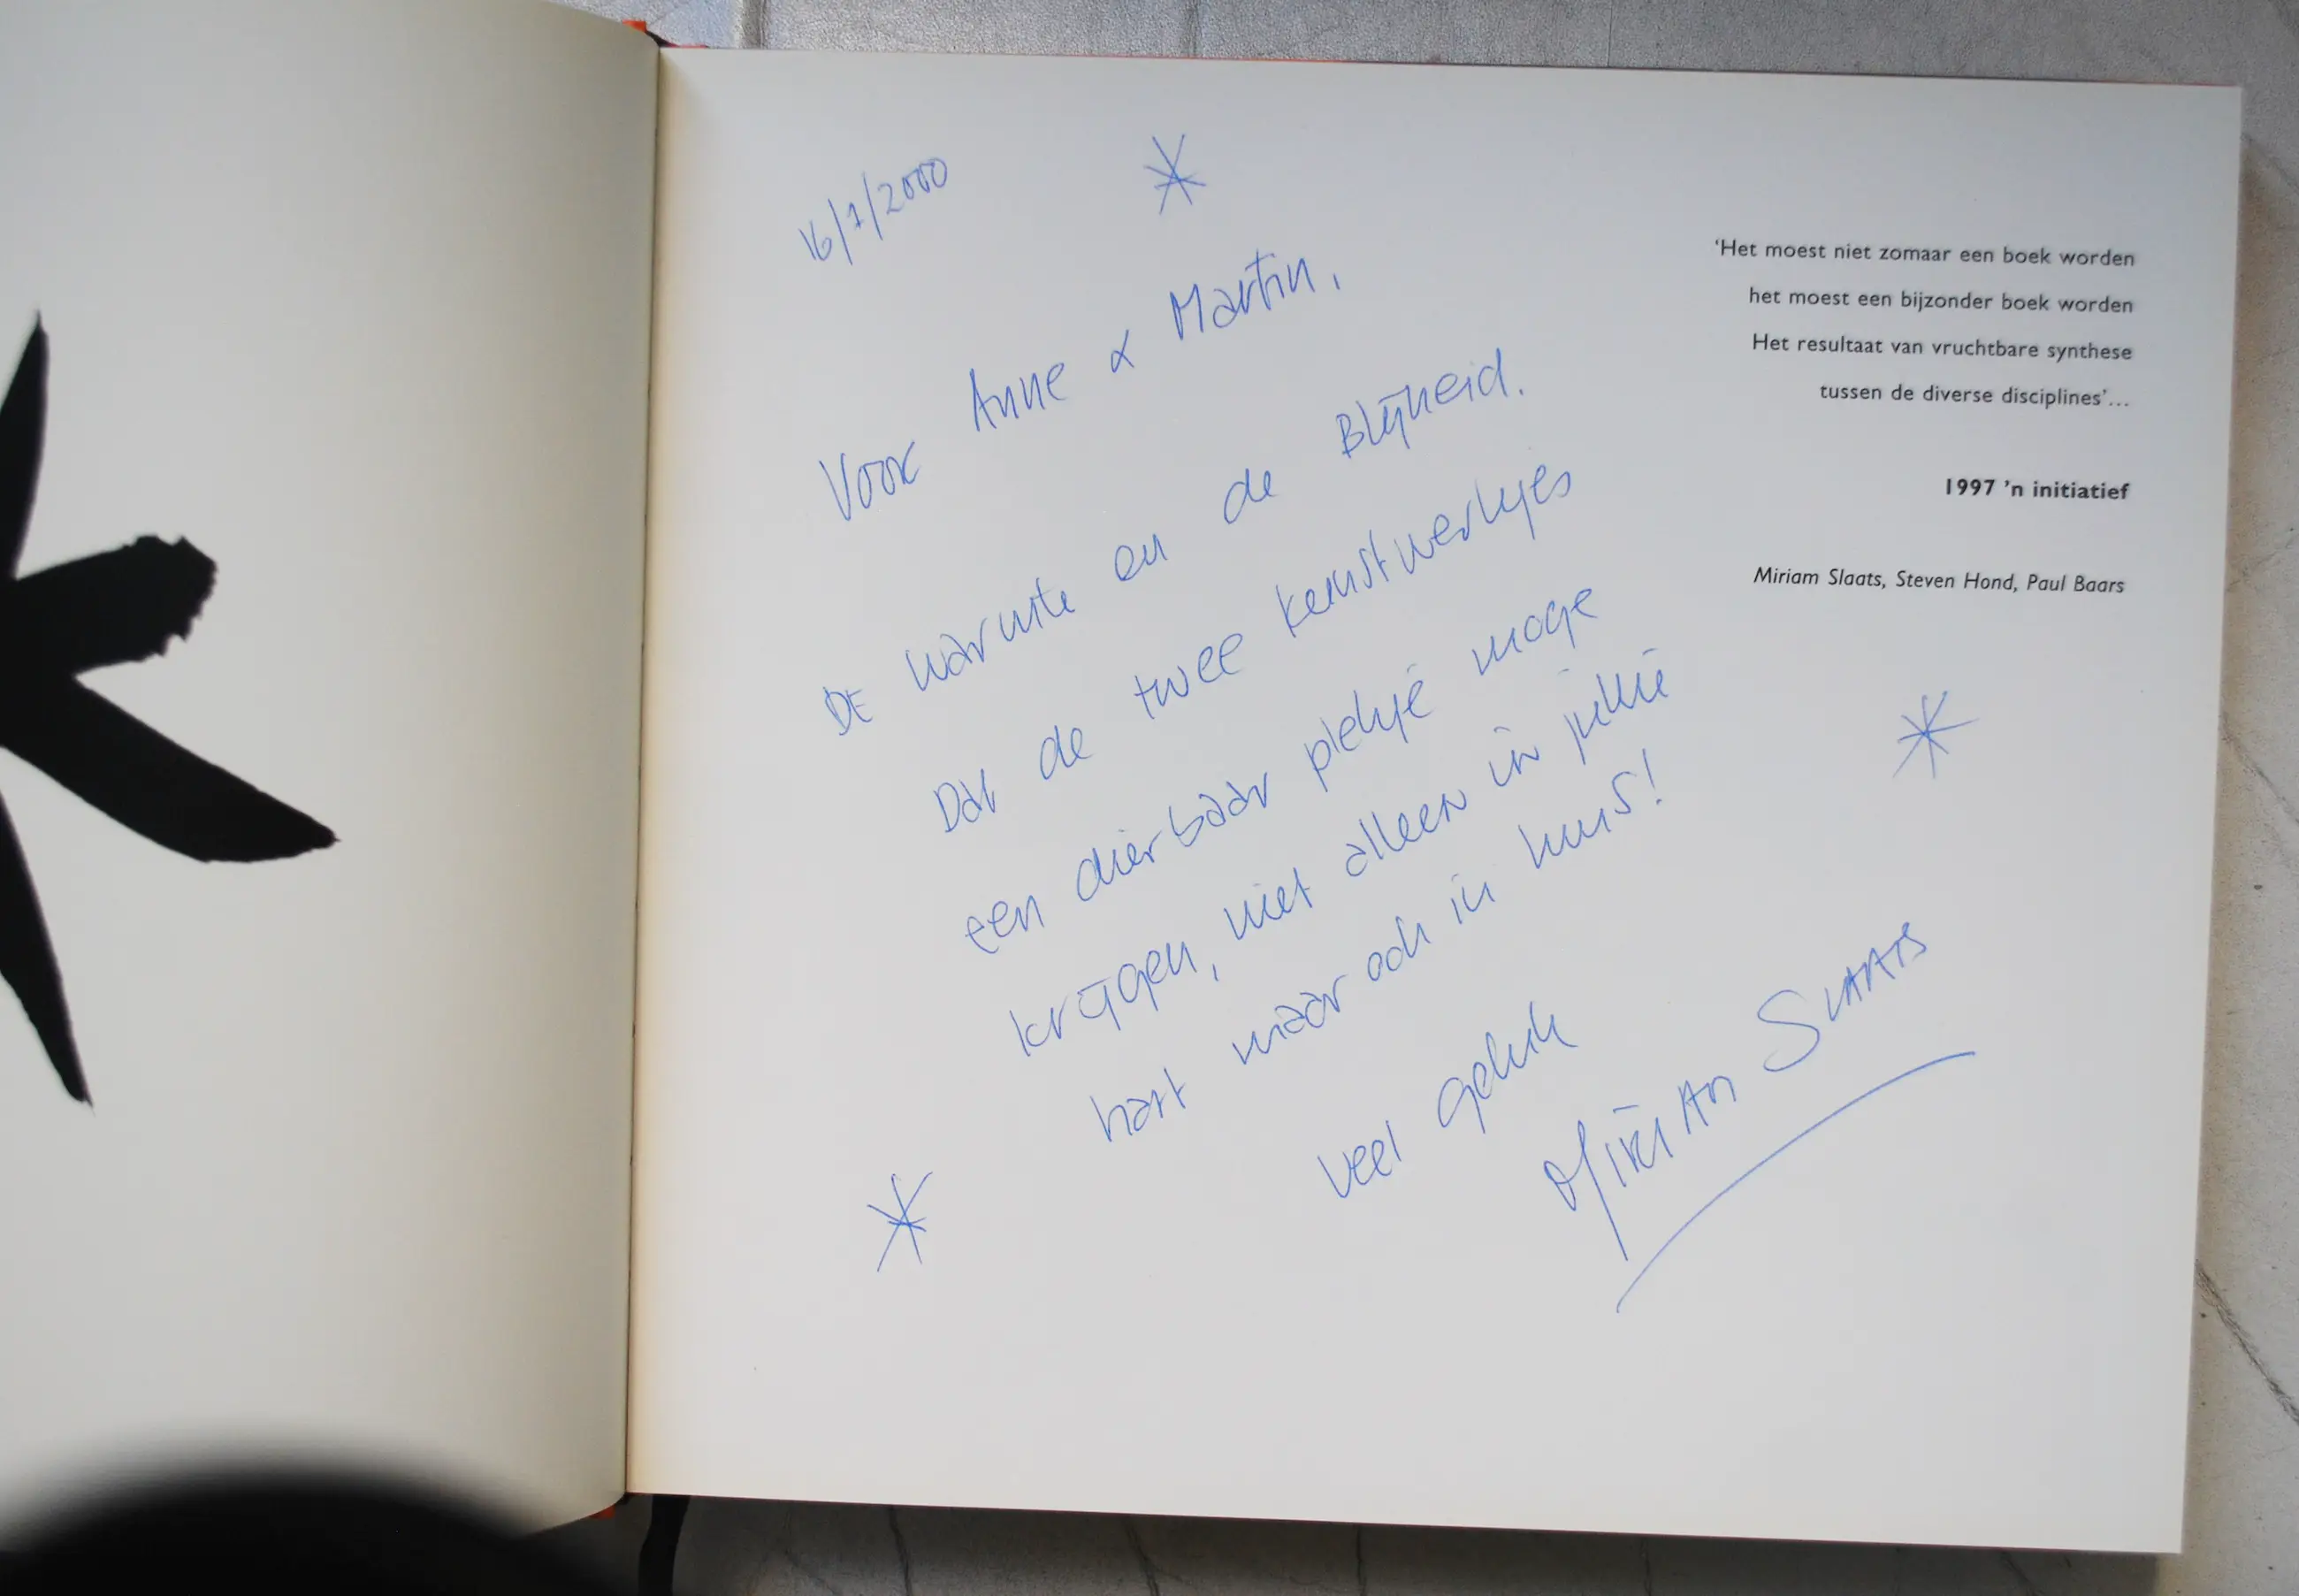 16/7/2000
Voor Anne & Martin,
DE warmte en de Blijheid.
Dat de twee kunstwerkjes
een dierbaar plekje moge
krijgen, niet alleen in jullie
hart maar ook in huis!
Veel geluk
Miriam Slaats
'Het moest niet zomaar een boek worden
het moest een bijzonder boek worden
Het resultaat van vruchtbare synthese
tussen de diverse disciplines'...
1997 'n initiatief
Miriam Slaats, Steven Hond, Paul Baars